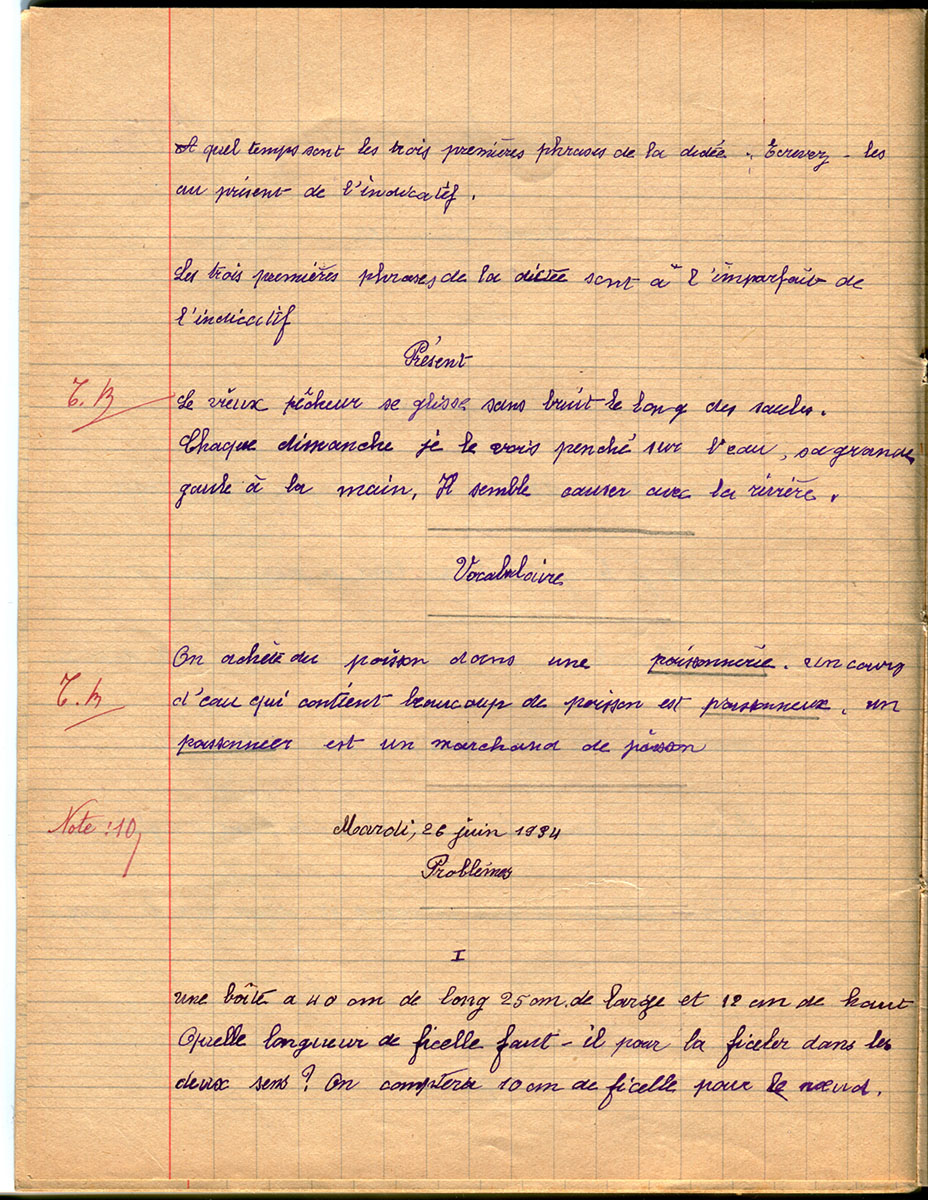 A quel temps sont les trois premières phrases de la dictée. Ecrivez-les
au présent de l'indicatif.
Les trois premières phrases de la dictée sont à l'imparfait de
l'indicatif
Présent
T.B Le vieux pêcheur se glisse sans bruit le long des saules.
Chaque dimanche je le vois penché sur l'eau, sa grande
gaule à la main. Il semble causer avec la rivière.
Vocabulaire
On achète du poisson dans une poissonnerie. Un cours
T.B d'eau qui contient beaucoup de poisson est poissonneux. un
poissonnier est un marchand de poisson
Note : 10 Mardi, 26 juin 1934
Problèmes
I
Une boîte a 40 cm de long 25 cm. de large et 12 cm de haut
Quelle longueur de ficelle faut-il pour la ficeler dans les
deux sens ? On comptera 10 cm de ficelle pour le nœud.